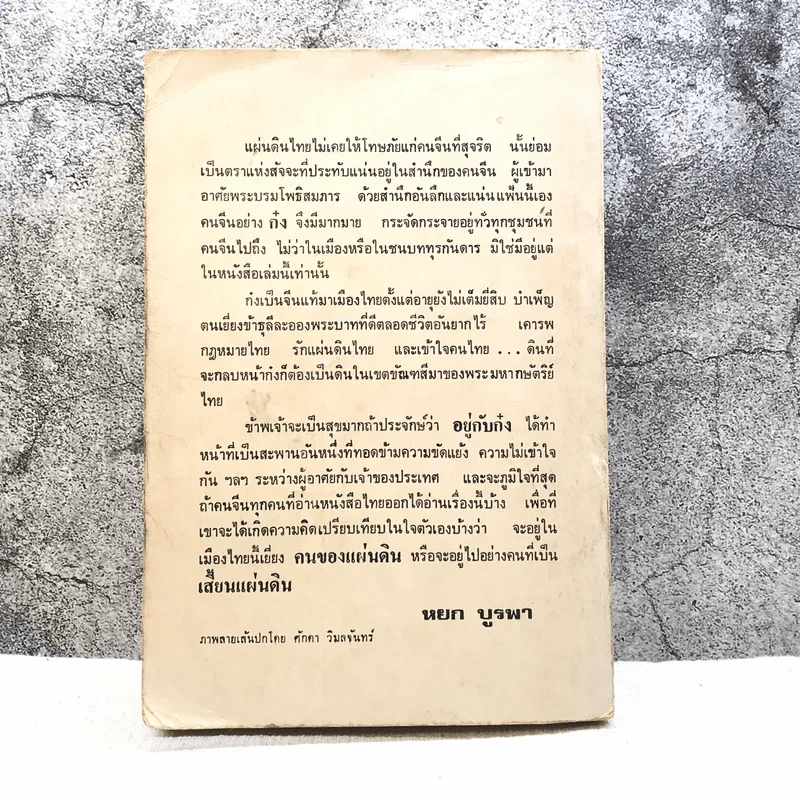 แผ่นดินไทยไม่เคยให้โทษภัยแก่คนจีนที่สุจริต นั้นย่อม
เป็นตราแห่งสัจจะที่ประทับแน่นอยู่ในสำนึกของคนจีน ผู้เข้ามา
อาศัยพระบรมโพธิสมภาร ด้วยสำนึกอันลึกและแน่นแฟ้นนี้เอง
คนจีนอย่าง ก๋ง จึงมีมากมาย กระจัดกระจายอยู่ทั่วทุกชุมชนที่
คนจีนไปถึง ไม่ว่าในเมืองหรือในชนบททุรกันดาร มิใช่มีอยู่แต่
ในหนังสือเล่มนี้เท่านั้น
ก๋งเป็นจีนแท้มาเมืองไทยตั้งแต่อายุยังไม่เต็มยี่สิบ บำเพ็ญ
ตนเยี่ยงข้าธุลีละอองพระบาทที่ดีตลอดชีวิตอันยากไร้ เคารพ
กฎหมายไทย รักแผ่นดินไทย และเข้าใจคนไทย ... ดินที่
จะกลบหน้าก๋งก็ต้องเป็นดินในเขตขัณฑสีมาของพระมหากษัตริย์
ไทย
ข้าพเจ้าจะเป็นสุขมากถ้าประจักษ์ว่า อยู่กับก๋ง ได้ทำ
หน้าที่เป็นสะพานอันหนึ่งที่ทอดข้ามความขัดแย้ง ความไม่เข้าใจ
กัน ฯลฯ ระหว่างผู้อาศัยกับเจ้าของประเทศ และจะภูมิใจที่สุด
ถ้าคนจีนทุกคนที่อ่านหนังสือไทยออกได้อ่านเรื่องนี้บ้าง เพื่อที่
เขาจะได้เกิดความคิดเปรียบเทียบในใจตัวเองบ้างว่า จะอยู่ใน
เมืองไทยนี้เยี่ยง คนของแผ่นดิน หรือจะอยู่ไปอย่างคนที่เป็น
เสี้ยนแผ่นดิน
หยก บูรพา
ภาพลายเส้นปกโดย ศักดา วิมลจันทร์